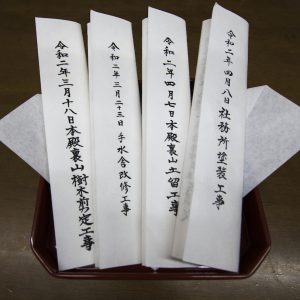 令和二年三月十八日本殿裏山樹木剪定工事
令和二年三月二十三日 手水舎改修工事
令和二年四月七日本殿裏山土留工事
令和二年四月八日社務所塗装工事